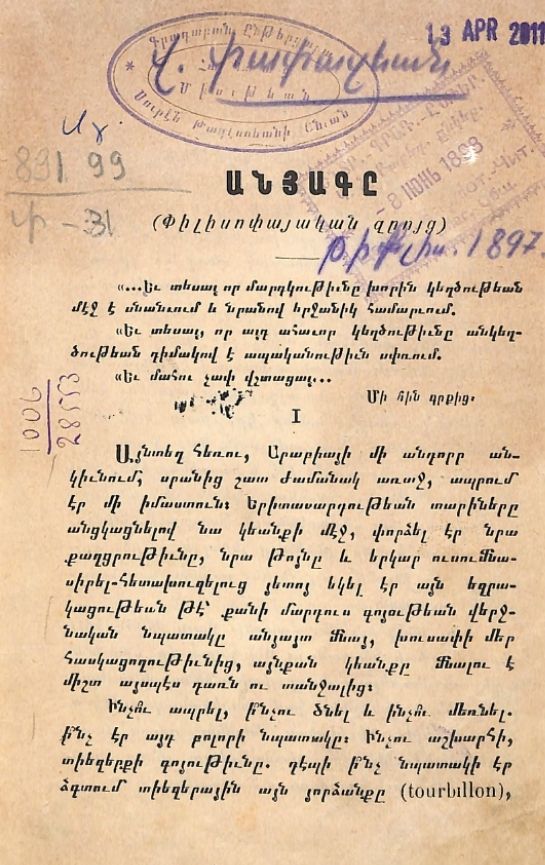 13 APR 2011
Վ. Փափազեան
Ա Մ
891.99
Փ-31
8 ИЮНЬ 1898
ԱՆՅԱԳԸ
(Փիլիսոփայական զրոյց)
Թիֆլիս. 1897
«...Եւ տեսայ որ մարդկութիւնը խորին կեղծութեան
մէջ է սնանւում և նրանով երջանիկ համարւում.
«Եւ տեսայ, որ այդ ահաւոր կեղծութիւնը անկեղ-
ծութեան դիմակով է ապականութիւն սփռում.
«Եւ մահու չափ վշտացայ...
Մի հին գրքից.
I
1006
28553
Այնտեղ հեռու, Արաբիայի մի անդորր ան-
կիւնում, սրանից շատ ժամանակ առաջ, ապրում
էր մի իմաստուն: Երիտասարդութեան տարիները
անցկացնելով նա կեանքի մէջ, փորձել էր նրա
քաղցրութիւնը, նրա թոյնը և երկար ուսումնա-
սիրել-հետախուզելուց յետոյ եկել էր այն եզրա-
կացութեան թէ՝ քանի մարդուս գոյութեան վերջ-
նական նպատակը անյայտ մնայ, խուսափի մեր
հասկացողութիւնից, այնքան կեանքը մնալու է
միշտ այսպէս դառն ու տանջալից:
Ինչու ապրել, ի՞նչու ծնել և ինչու մեռնել.
ի՞նչ էր այդ բոլորի նպատակը: Ինչու աշխարհի,
տիեզերքի գոյութիւնը. դէպի ի՞նչ նպատակի էր
ձգտում տիեզերային այն յորձանքը (tourbillon),